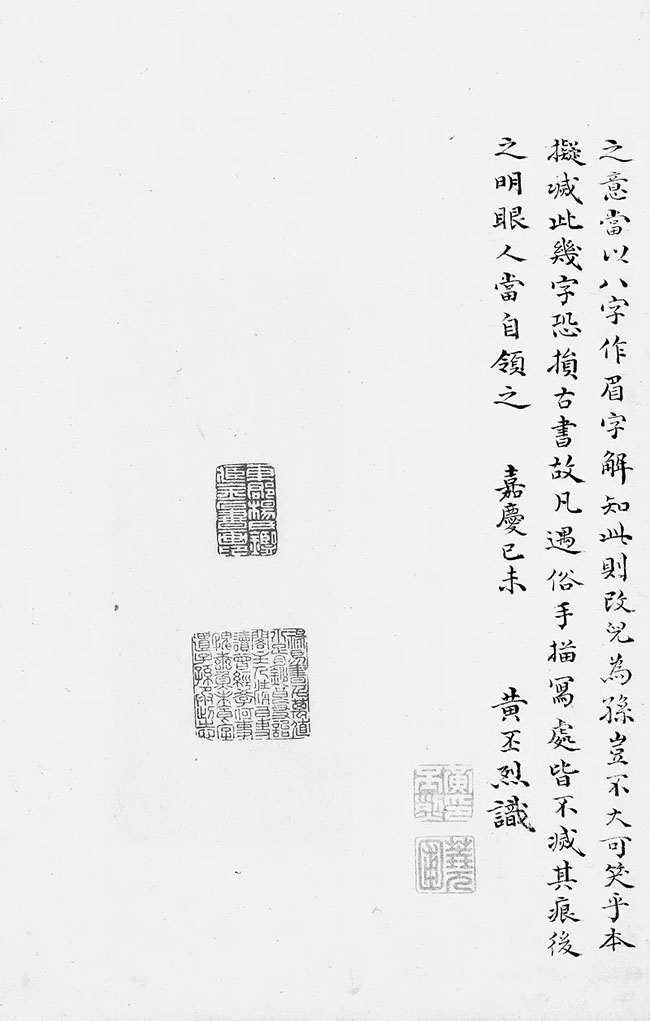 之意當以八字作眉字解知此則改兒為孫豈不大可笑乎本
擬滅此幾字恐損古書故凡遇俗手描寫處皆不滅其痕後
之明眼人當自領之　嘉慶己未　黃丕烈識
黃印丕烈
蕘圃